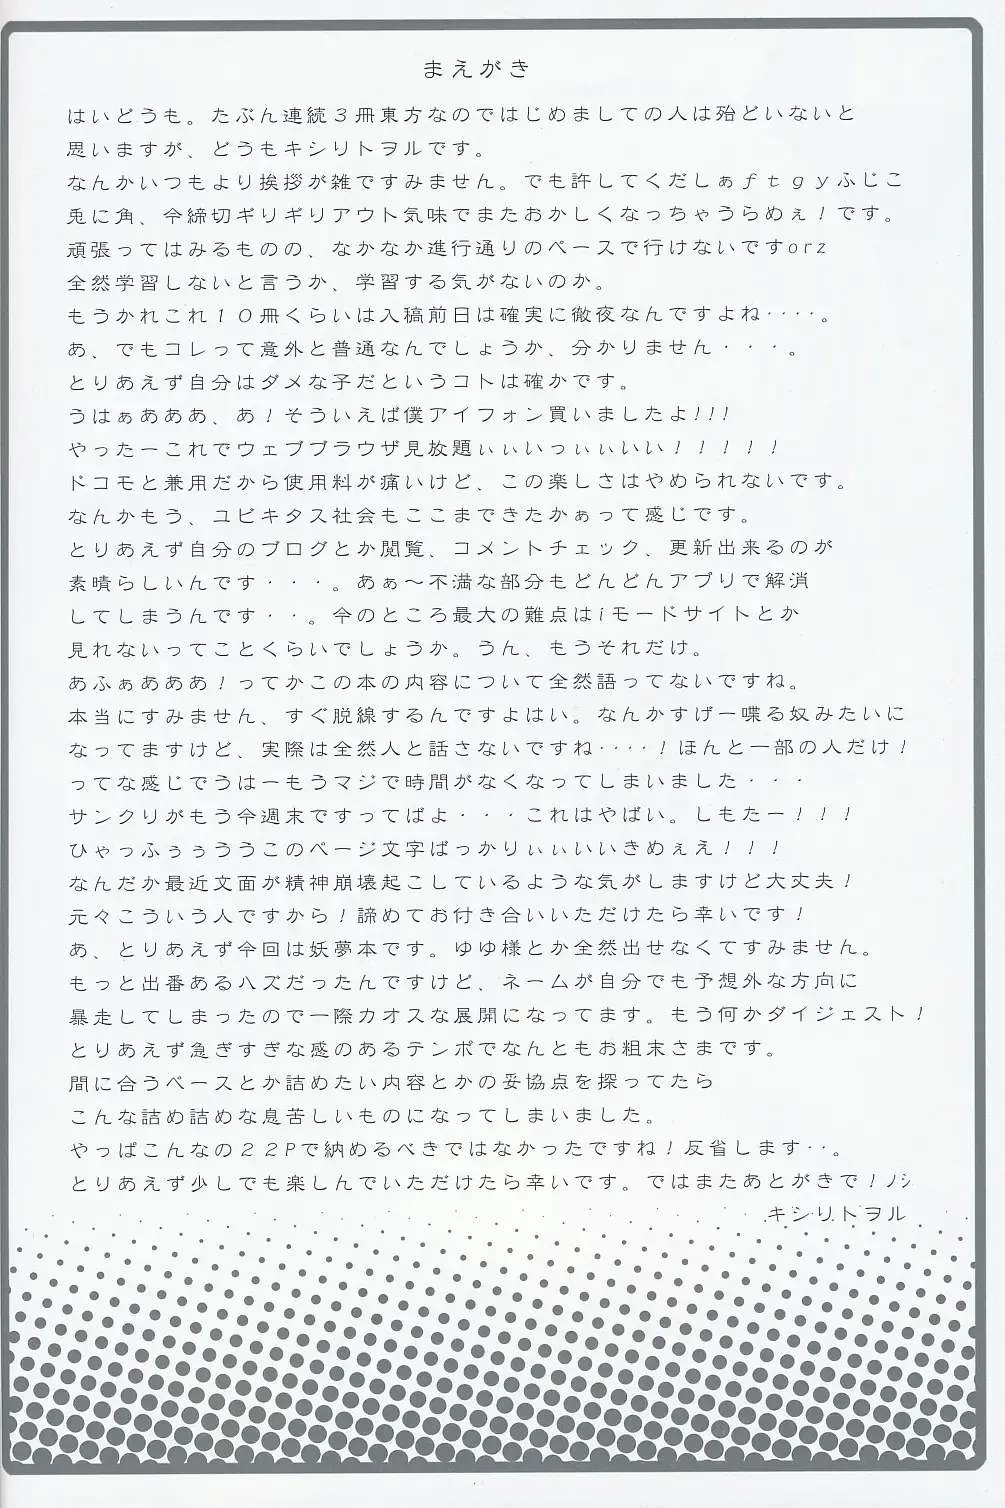 まえがき
はいどうも。たぶん連続３冊東方なのではじめましての人は殆どいないと
思いますが、どうもキシリトヲルです。
なんかいつもより挨拶が雑ですみません。でも許してくだしぁｆｔｇｙふじこ
兎に角、今締切ギリギリアウト気味でまたおかしくなっちゃうらめぇ！です。
頑張ってはみるものの、なかなか進行通りのペースで行けないですorz
全然学習しないと言うか、学習する気がないのか。
もうかれこれ１０冊くらいは入稿前日は確実に徹夜なんですよね‥‥。
あ、でもコレって意外と普通なんでしょうか、分かりません・・・。
とりあえず自分はダメな子だというコトは確かです。
うはぁあああ、あ！そういえば僕アイフォン買いましたよ!!!
やったーこれでウェブブラウザ見放題ぃぃいっぃぃいい！！！！！
ドコモと兼用だから使用料が痛いけど、この楽しさはやめられないです。
なんかもう、ユビキタス社会もここまできたかぁって感じです。
とりあえず自分のブログとか閲覧、コメントチェック、更新出来るのが
素晴らしいんです・・・。あぁ～不満な部分もどんどんアプリで解消
してしまうんです・・。今のところ最大の難点はiモードサイトとか
見れないってことくらいでしょうか。うん、もうそれだけ。
あふぁあああ！ってかこの本の内容について全然語ってないですね。
本当にすみません、すぐ脱線するんですよはい。なんかすげー喋る奴みたいに
なってますけど、実際は全然人と話さないですね‥‥！ほんと一部の人だけ！
ってな感じでうはーもうマジで時間がなくなってしまいました・・・
サンクリがもう今週末ですってばよ・・・これはやばい。しもたー！！！
ひゃっふぅぅううこのページ文字ばっかりぃぃいいきめぇえ！！！
なんだか最近文面が精神崩壊起こしているような気がしますけど大丈夫！
元々こういう人ですから！諦めてお付き合いいただけたら幸いです！
あ、とりあえず今回は妖夢本です。ゆゆ様とか全然出せなくてすみません。
もっと出番あるハズだったんですけど、ネームが自分でも予想外な方向に
暴走してしまったので一際カオスな展開になってます。もう何かダイジェスト！
とりあえず急ぎすぎな感のあるテンポでなんともお粗末さまです。
間に合うペースとか詰めたい内容とかの妥協点を探ってたら
こんな詰め詰めな息苦しいものになってしまいました。
やっぱこんなの２２Ｐで納めるべきではなかったですね！反省します‥。
とりあえず少しでも楽しんでいただけたら幸いです。ではまたあとがきで！ﾉｼ
キシリトヲル